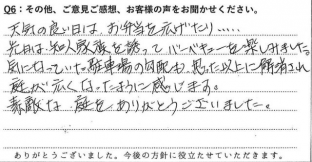 Q6：その他、ご意見ご感想、お客様の声をお聞かせください。
天気の良い日は、お弁当を広げたり.....
先日は知人家族を誘ってバーベキューを楽しみました。
気になっていた駐車場の勾配も思った以上に解消され
庭が広くなったように感じます。
素敵な庭をありがとうございました。
ありがとうございました。今後の方針に役立たせていただきます。